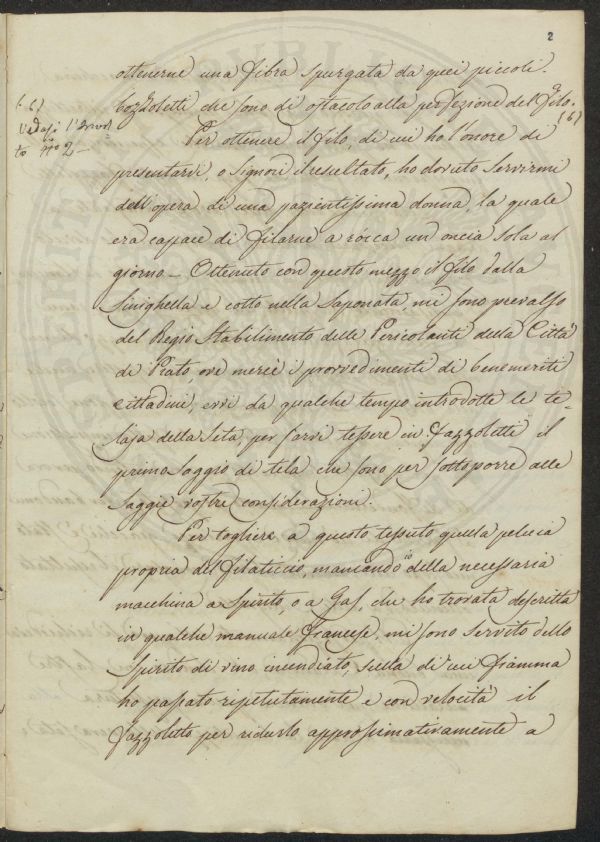 2
ottenerne una fibra spurgata da quei piccoli
bozzoletti che sono di ostacolo alla perfezione del filo. (6)
(6)
Vedasi l'Invol
to No 2 -
Per ottenere il filo, di cui ho l'onore di
presentarvi, o Signori il resultato, ho dovuto servirmi
dell'opera di una pazientissima donna, la quale
era capace di filarne a rócca un'oncia sola al
giorno - Ottenuto con questo mezzo il filo dalla
Sinighella e cotto nella Saponata, mi sono prevalso
del Regio Stabilimento delle Pericolanti della Città
di Prato, ove mercè i provvedimenti di benemeriti
cittadini, evvi da qualche tempo introdotte le te-
laja della Seta per farvi tessere in Fazzoletti il
primo Saggio di tela che sono per sottoporre alle
saggie vostre considerazioni.
Per togliere a questo tessuto quella peluia
propria del filaticcio, mancando io della necessaria
macchina a Spirito, o a Gas, che ho trovata descritta
in qualche manuale Francese, mi sono servito dello
Spirito di vino incendiato, sulla di cui fiamma
ho passato ripetutamente e con velocità il
fazzoletto per ridurlo approssimativamente a